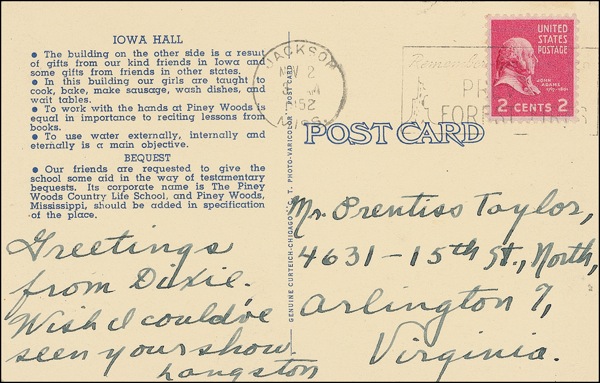 IOWA HALL
• The building on the other side is a result
of gifts from our kind friends in Iowa and
some gifts from friends in other states.
• In this building our girls are taught to
cook, bake, make sausage, wash dishes, and
wait tables.
• To work with the hands at Piney Woods is
equal in importance to reciting lessons from
books.
• To use water externally, internally and
eternally is a main objective.
BEQUEST
• Our friends are requested to give the
school some aid in the way of testamentary
bequests. Its corporate name is The Piney
Woods Country Life School, and Piney Woods,
Mississippi, should be added in specification
of the place.
Greetings
from Dixie.
Wish I could've
seen your show
Langston
GENUINE CURTEICH-CHICAGO "C. T. PHOTO-VARICOLOR" POST CARD
JACKSON
2
1952
MISS.
Remember
FOREST FIRES
UNITED
STATES
POSTAGE
JOHN
ADAMS
2 CENTS 2
POST CARD
Mr. Prentiss Taylor,
4631-15th St., North,
Arlington 7,
Virginia.